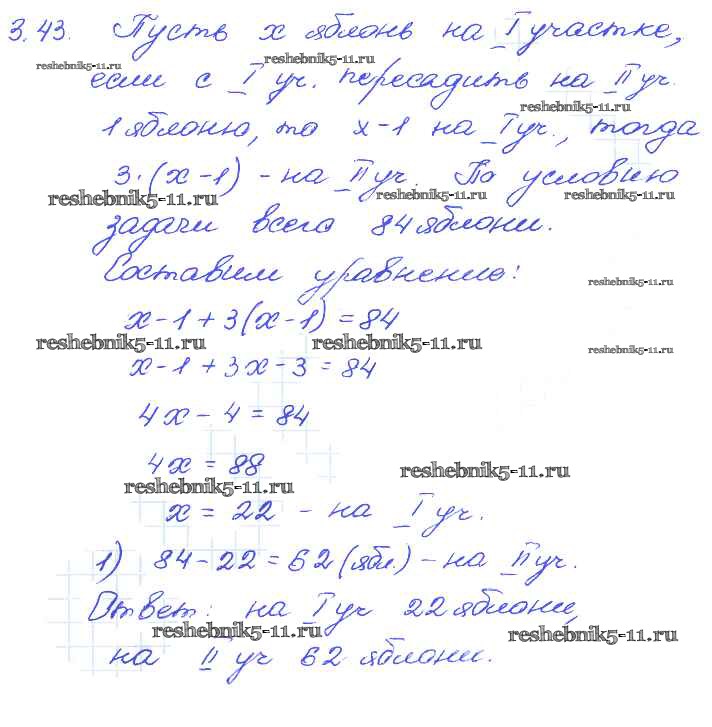 3.43. Пусть x яблонь на I участке,
reshebnik5-11.ru reshebnik5-11.ru
если с I уч. пересадить на II уч.
reshebnik5-11.ru
1 яблоню, то x-1 на I уч., тогда
3·(x-1) - на II уч. По условию
reshebnik5-11.ru reshebnik5-11.ru reshebnik5-11.ru
задачи всего 84 яблони.
Составим уравнение:
reshebnik5-11.ru
x-1+3(x-1)=84
reshebnik5-11.ru reshebnik5-11.ru reshebnik5-11.ru
x-1+3x-3=84
4x-4=84
4x=88
reshebnik5-11.ru
reshebnik5-11.ru
x=22 - на I уч.
1) 84-22=62(ябл.) - на II уч.
Ответ: на I уч 22 яблони,
reshebnik5-11.ru reshebnik5-11.ru
на II уч 62 яблони.